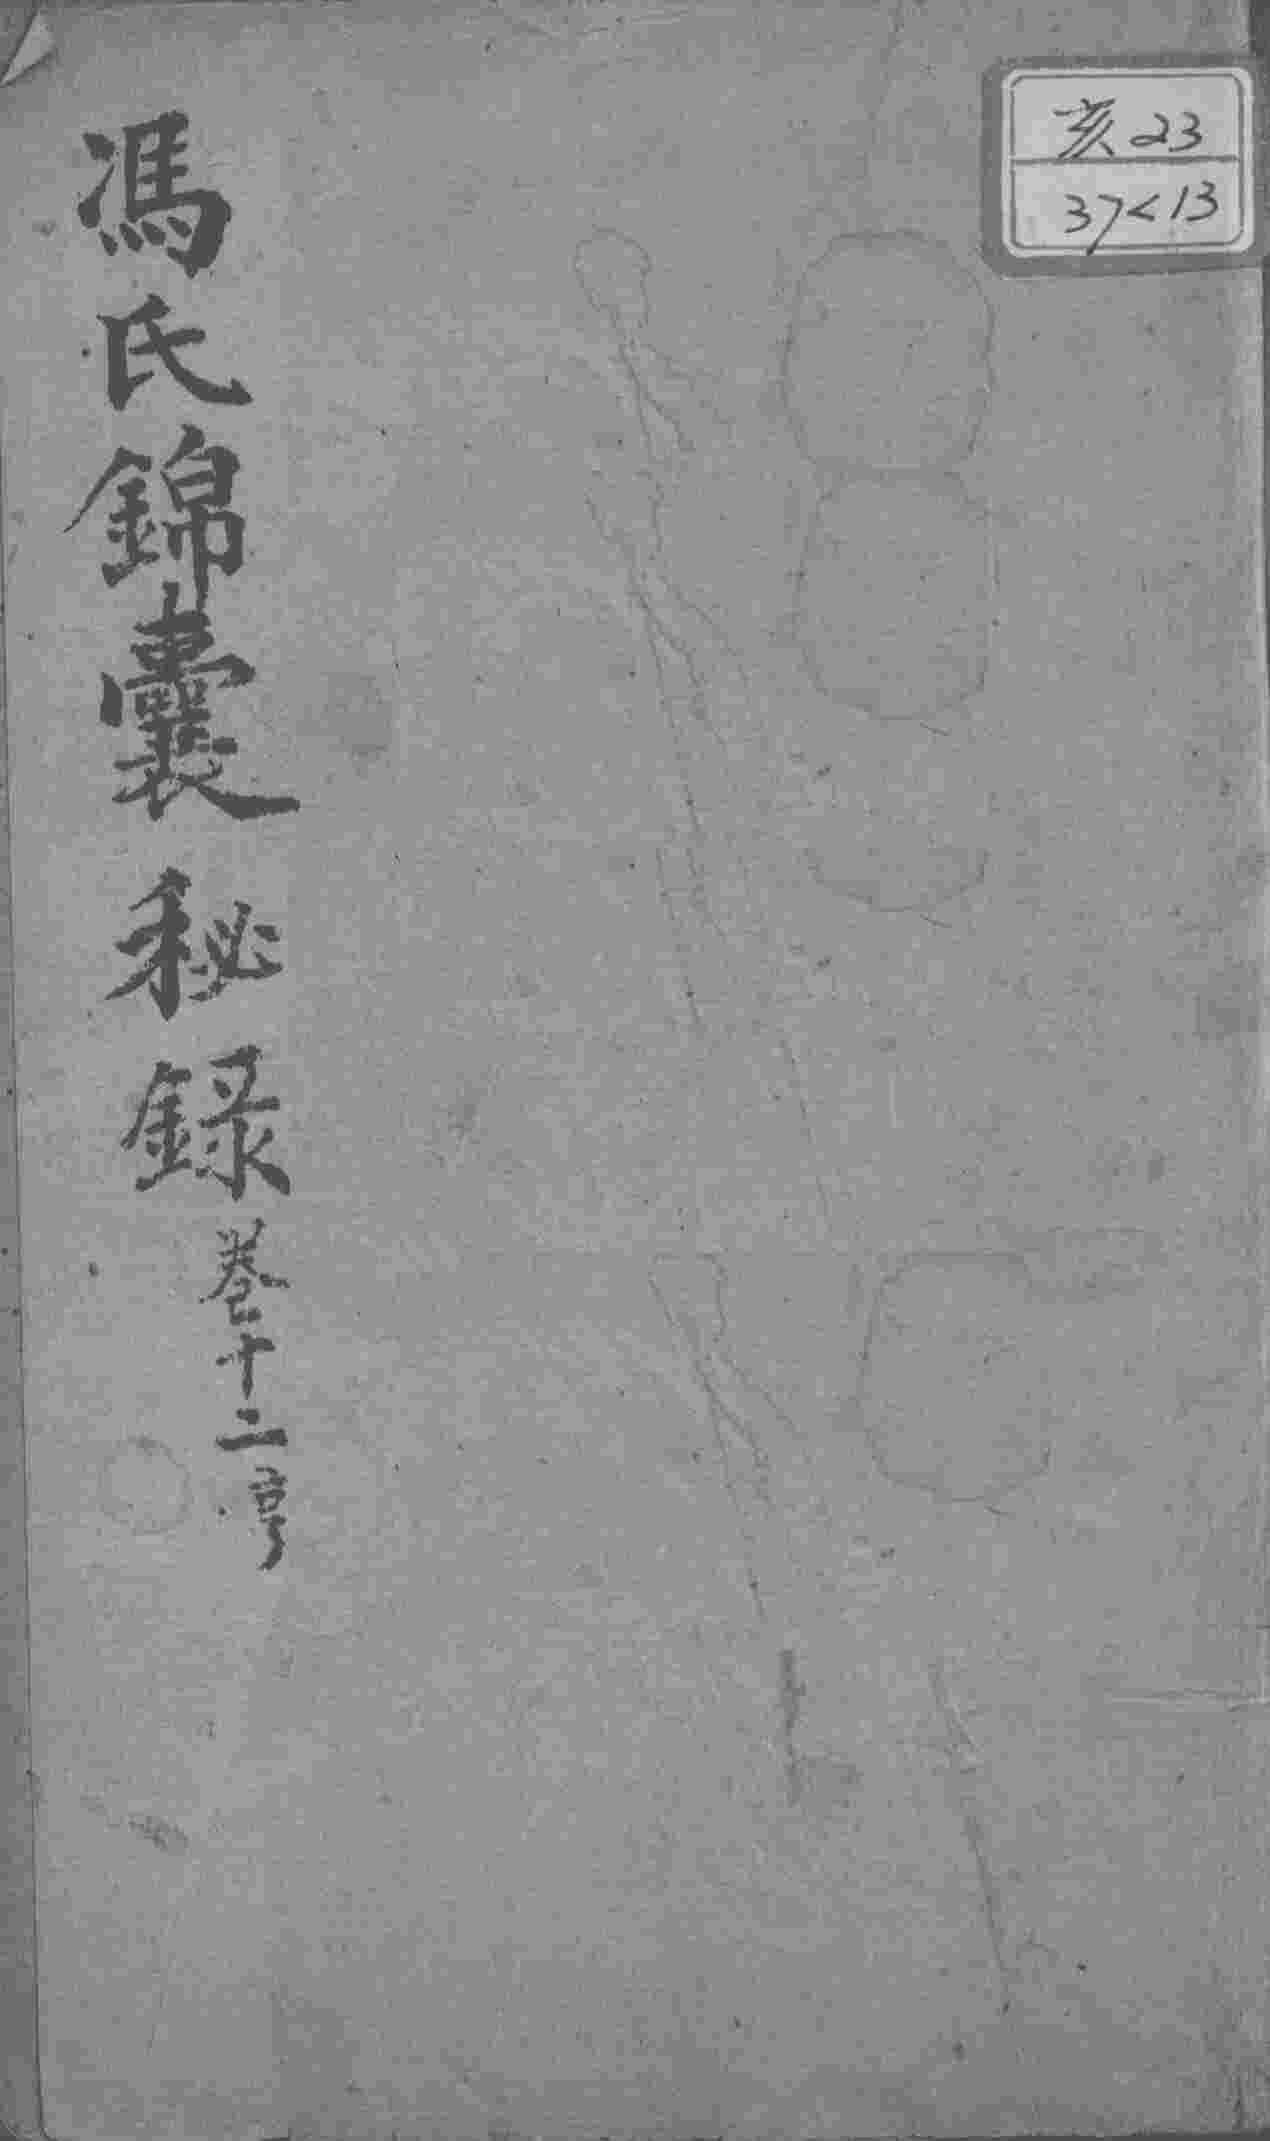 亥23
37<13
馮氏錦囊秘録
卷十二亨